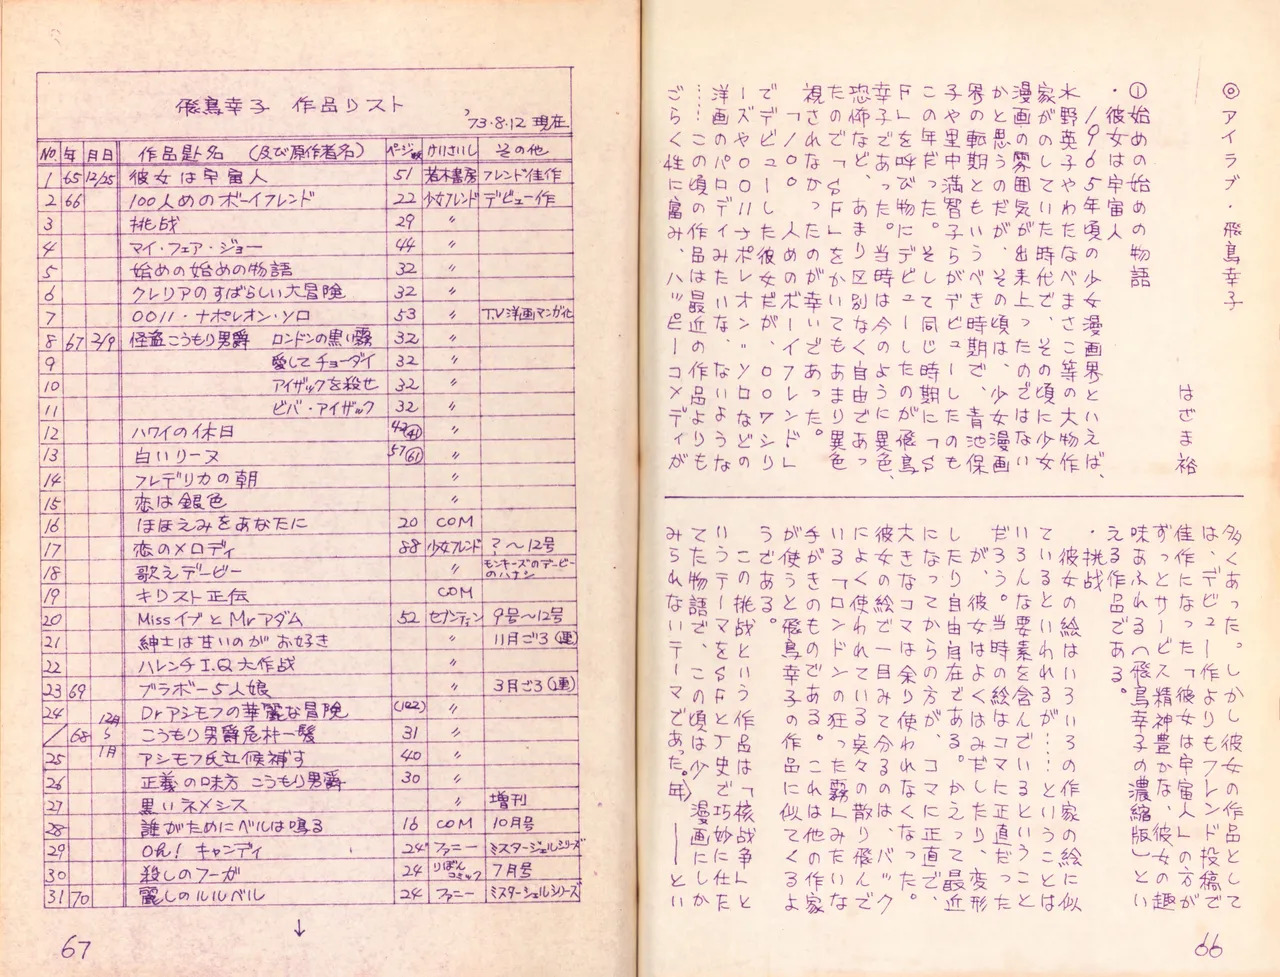 ◎アイラブ・飛鳥幸子
はざま裕
①始めの始めの物語
・彼女は宇宙人
1965年頃の少女漫画界といえば、
水野英子やわたなべまさこ等の大物作
家がのしていた時代で、その頃に少女
漫画の雰囲気が出来上ったのではない
かと思うのだが、その頃は、少女漫画
界の転期ともいうべき時期で、青池保
子や里中満智子らがデビューしたのも
この年だった。そして同じ時期に「S
F」を呼び物にデビューしたのが飛鳥
幸子であった。当時は今のように異色、
恐怖など、あまり区別なく自由であっ
たので「SF」をかいてもあまり異色
視されなかったのが幸いであった。
「100人めのボーイフレンド」
でデビューした彼女だが、00ワシリ
ーズや0011ナポレオン・ソロなどの
洋画のパロディみたいな、ないような
……この頃の作品は最近の作品よりも
ごらく性に富み、ハッピーコメディが
多くあった。しかし彼女の作品として
は、デビュー作よりもフレンド投稿で
佳作になった「彼女は宇宙人」の方が
ずっとサービス精神豊かな、彼女の趣
味あふれる〈飛鳥幸子の濃縮版〉とい
える作品である。
・挑戦
彼女の絵はいろいろの作家の絵に似
ているといわれるが……ということは
いろんな要素を含んでいるということ
だろう。当時の絵はコマに正直だった
が、彼女はよくはみだしたり、変形
したり自由自在である。かえって最近
になってからの方が、コマに正直で、
大きなコマは余り使われなくなった。
彼女の絵で一目みて分るのは、バック
によく使われている点々の散り飛んで
いる「ロンドンの狂った霧」みたいな
手がきのものである。これは他の作家
が使うと飛鳥幸子の作品に似てくるよ
うである。
この挑戦という作品は「核戦争」と
いうテーマをSFと史で巧妙に仕た
てた物語で、この頃は少漫画にしか
みられないテーマであった。――とい
66
飛鳥幸子 作品リスト
'73.8.12 現在
No. 年 月日 作品名 (及び原作者名) ページ数 けいさいし その他
1 65 12/25 彼女は宇宙人 51 若木書房 フレンド佳作
2 66 100人めのボーイフレンド 22 少女フレンド デビュー作
3 挑戦 29 〃
4 マイ・フェア・ジョー 44 〃
5 始めの始めの物語 32 〃
6 クレリアのすばらしい大冒険 32 〃
7 0011・ナポレオン・ソロ 53 〃 T.V洋画マンガ化
8 67 2/9 怪盗こうもり男爵 ロンドンの黒い霧 32 〃
9 愛してチョーダイ 32 〃
10 アイザックを殺せ 32 〃
11 ビバ・アイザック 32 〃
12 ハワイの休日 42(41) 〃
13 白いリーヌ 57(61) 〃
14 フレデリカの朝 〃
15 恋は銀色 〃
16 ほほえみをあなたに 20 COM
17 恋のメロディ 88 少女フレンド ?〜12号
18 歌えデービー 〃 モンキーズのデービーのハナシ
19 キリスト正伝 COM
20 MissイブとMrアダム 52 セブンティン 9号〜12号
21 紳士は甘いのがお好き 〃 11月ごろ(連)
22 ハレンチI.Q大作戦 〃
23 69 ブラボー5人娘 〃 3月ごろ(連)
24 Drアシモフの華麗な冒険 (122) 〃
/ 68 12月5 1月 こうもり男爵危朴一髪 31 〃
25 アシモフ氏立候補す 40 〃
26 正義の味方 こうもり男爵 30 〃
27 黒いネメシス 〃 増刊
28 誰がためにベルは鳴る 16 COM 10月号
29 Oh! キャンディ 24 ファニー ミスターシェルシリーズ
30 殺しのフーガ 24 りぼんコミック 7月号
31 70 麗しのルルベル 24 ファニー ミスターシェルシリーズ
↓
67